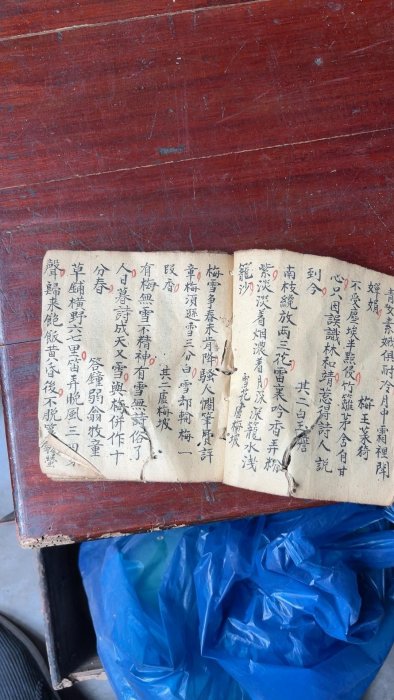 青女素娥俱耐冷月中霜裡鬥
嬋娟　梅王菉猗
不受塵埃半點侵竹籬茅舍自甘
心只因誤識林和靖惹得詩人說
到今　其二白玉蟾
南枝纔放兩三花雪裏吟香弄粉
紫淡淡着烟濃着月深深籠水浅
籠沙　雪花盧梅坡
梅雪爭春未肯降騷人擱筆費評
章梅須遜雪三分白雪却輸梅一
段香　其二盧梅坡
有梅無雪不精神有雪無詩俗了
人日暮詩成天又雪與梅併作十
分春　答鐘弱翁牧童
草鋪橫野六七里笛弄晚風三四
聲歸來飽飯黃昏後不脫蓑